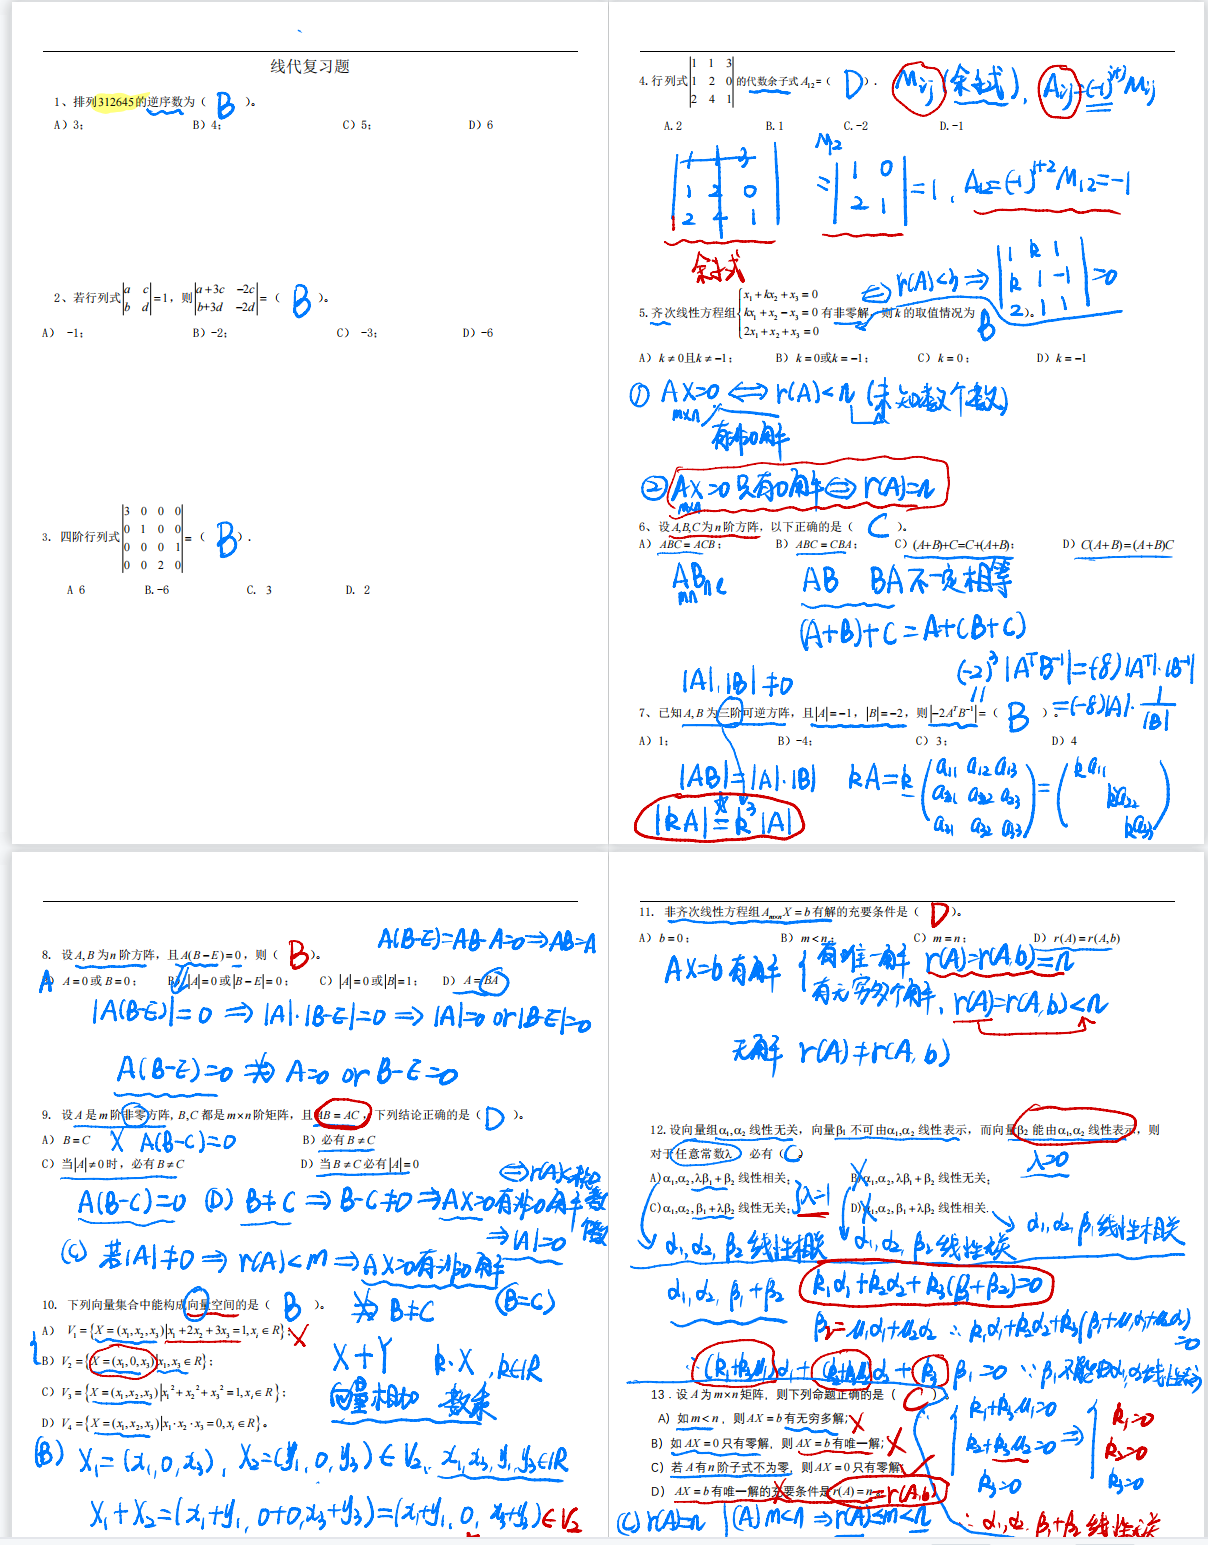 线代复习题
1、排列312645的逆序数为（ B ）。
A）3； B）4； C）5； D）6
2、若行列式|a c; b d|=1，则|a+3c −2c; b+3d −2d|=（ B ）。
A） -1； B）-2； C） -3； D）-6
3. 四阶行列式
3 0 0 0
0 1 0 0
0 0 0 1
0 0 2 0
=（ B ）.
A 6 B.-6 C. 3 D. 2
4.行列式
1 1 3
1 2 0
2 4 1
的代数余子式A₁₂=（ D ）. Mij (余子式), Aij=(-1)^(i+j) Mij
A.2 B.1 C.-2 D.-1
1 1 3
1 2 0
2 4 1
余子式
M12 = |1 0; 2 1| = 1, A12=(-1)^(1+2) M12=-1
⇔ r(A)<3 ⇒ |1 k 1; k 1 -1; 2 1 1|=0
5.齐次线性方程组
x₁+kx₂+x₃=0
kx₁+x₂−x₃=0
2x₁+x₂+x₃=0
有非零解，则k的取值情况为 B ）。
A）k≠0且k≠−1； B）k=0或k=−1； C）k=0； D）k=−1
① AX=0 ⇔ r(A)<n (未知数个数)
m×n
有非0解
② AX=0只有0解⇔ r(A)=n
m×n
6、设A,B,C为n阶方阵，以下正确的是（ C ）。
A）ABC=ACB； B）ABC=CBA； C）(A+B)+C=C+(A+B)； D）C(A+B)=(A+B)C
AB BA不一定相等
(A+B)+C=A+(B+C)
|A|,|B|≠0
(-2)³|AᵀB⁻¹|=(-8)|Aᵀ|·|B⁻¹|
=(-8)|A|·1/|B|
7、已知A,B为三阶可逆方阵，且|A|=−1，|B|=−2，则|−2AᵀB⁻¹|=（ B ）。
A）1； B）-4； C）3； D）4
|AB|=|A|·|B| kA=k(a11 a12 a13; a21 a22 a23; a31 a32 a33)=(ka11 ka22 ka33)
|kA|=k³|A|
A(B-E)=AB-A=0⇒AB=A
8. 设A,B为n阶方阵，且A(B−E)=0，则（ B ）。
A）A=0或B=0； B）|A|=0或|B−E|=0； C）|A|=0或|B|=1； D）A=BA
|A(B-E)|=0 ⇒ |A|·|B-E|=0 ⇒ |A|=0 or |B-E|=0
A(B-E)=0 ⇏ A=0 or B-E=0
9. 设A是m阶非零方阵,B,C都是m×n阶矩阵，且AB=AC，下列结论正确的是（ D ）。
A）B=C X A(B-C)=0 B）必有B≠C
C）当|A|≠0时，必有B≠C D）当B≠C必有|A|=0
A(B-C)=0 (D) B≠C ⇒ B-C≠0 ⇒AX=0有非0解
⇒|A|=0
(C) 若|A|≠0 ⇒ r(A)<m ⇒ AX=0有非0解
⇏ B≠C (B=C)
10. 下列向量集合中能构成向量空间的是（ B ）。
A） V₁={X=(x₁,x₂,x₃)|x₁+2x₂+3x₃=1,xᵢ∈R}； X
B）V₂={X=(x₁,0,x₃)|x₁,x₃∈R}；
C）V₃={X=(x₁,x₂,x₃)|x₁²+x₂²+x₃²=1,xᵢ∈R}；
D）V₄={X=(x₁,x₂,x₃)|x₁·x₂·x₃=0,xᵢ∈R}。
X+Y k·X, k∈R
向量相加 数乘
(B) X₁=(x₁,0,x₃), X₂=(y₁,0,y₃)∈V₂, x₁,x₃,y₁,y₃∈R
X₁+X₂=(x₁+y₁, 0+0,x₃+y₃)=(x₁+y₁, 0, x₃+y₃)∈V₂
11. 非齐次线性方程组AₘₓₙX=b有解的充要条件是（ D ）。
A）b=0； B）m<n； C）m=n； D）r(A)=r(A,b)
AX=b有解 有唯一解 r(A)=r(A,b)=n
有无穷多个解, r(A)=r(A,b)<n
无解 r(A)≠r(A,b)
12.设向量组α₁,α₂线性无关，向量β₁不可由α₁,α₂线性表示，而向量β₂能由α₁,α₂线性表示，则
对于任意常数λ 必有（ C
λ=0
A)α₁,α₂,λβ₁+β₂线性相关； B)α₁,α₂,λβ₁+β₂线性无关；
C)α₁,α₂,β₁+λβ₂线性无关； λ=1 D)α₁,α₂,β₁+λβ₂线性相关.
α₁,α₂,β₂线性相关 α₁,α₂,β₂线性无关 α₁,α₂,β₁线性相关
α₁,α₂,β₁+β₂ k₁α₁+k₂α₂+k₃(β₁+β₂)=0
β₂=μ₁α₁+μ₂α₂ ∴k₁α₁+k₂α₂+k₃(β₁+μ₁α₁+μ₂α₂)=0
∴(k₁+k₃μ₁)α₁+(k₂+k₃μ₂)α₂+k₃β₁=0
13.设A为m×n矩阵，则下列命题正确的是（ C ）
A）如m<n，则AX=b有无穷多解； X
B）如AX=0只有零解，则AX=b有唯一解； X
C）若A有n阶子式不为零，则AX=0只有零解；
D）AX=b有唯一解的充要条件是r(A)=n =r(A,b)
k₁+k₃μ₁=0
k₂+k₃μ₂=0 ⇒
k₃=0
k₁=0
k₂=0
k₃=0
(C) r(A)=n (A) m<n ⇒ r(A)≤m<n ∴α₁,α₂,β₁+β₂线性无关